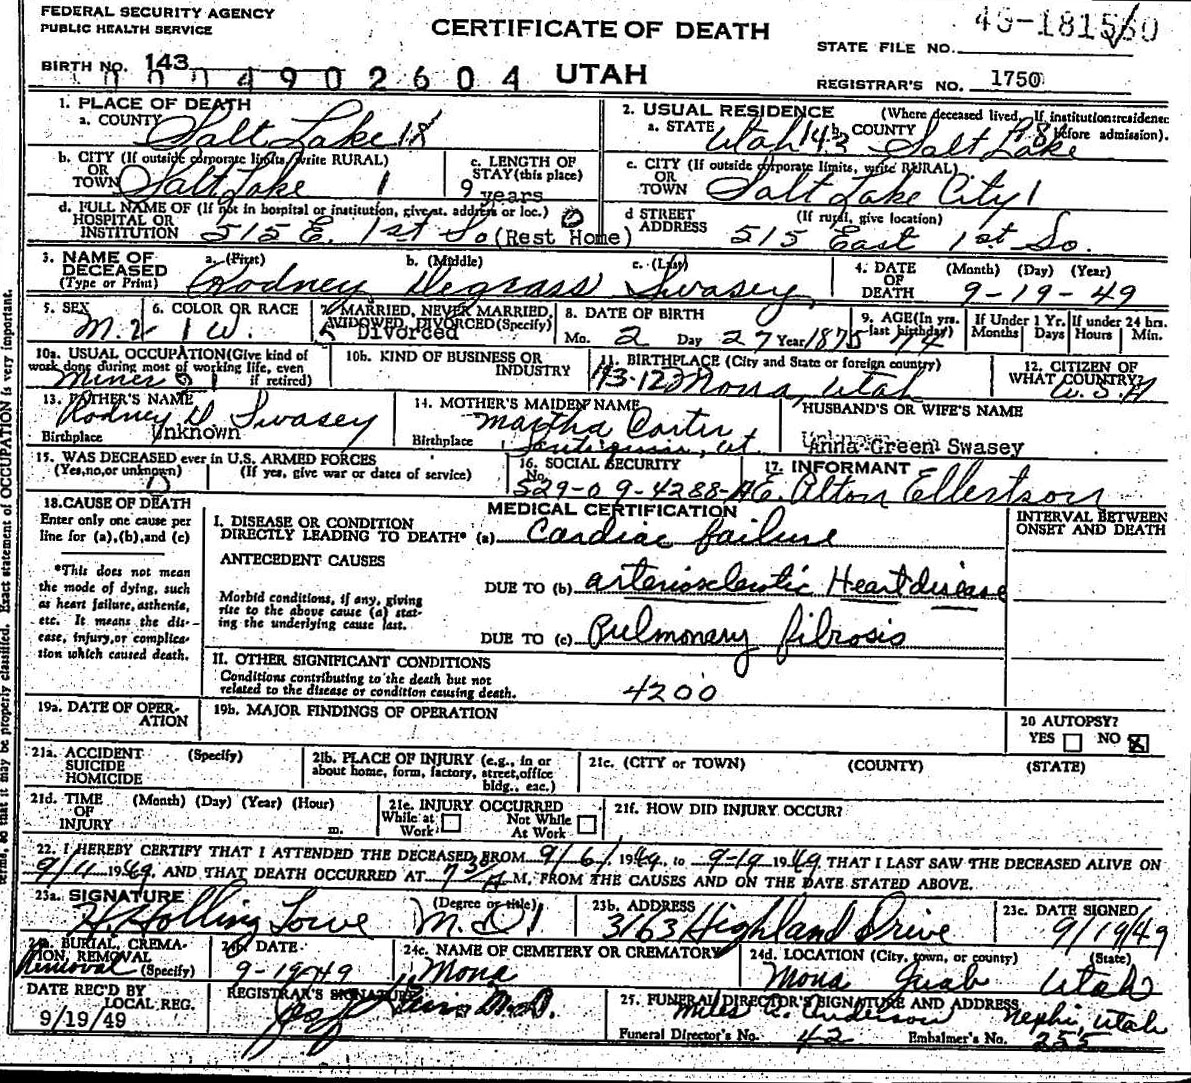 FEDERAL SECURITY AGENCY
PUBLIC HEALTH SERVICE
CERTIFICATE OF DEATH
STATE FILE NO.
BIRTH NO. 143
0004902604
UTAH
REGISTRAR'S NO. 1750
1. PLACE OF DEATH
a. COUNTY Salt Lake 18
2. USUAL RESIDENCE (Where deceased lived. If institution: residence before admission).
a. STATE Utah 143 b. COUNTY Salt Lake 18
b. CITY (If outside corporate limits, write RURAL)
OR TOWN Salt Lake 1
c. LENGTH OF STAY (this place)
9 years
c. CITY (If outside corporate limits, write RURAL)
OR TOWN Salt Lake City 1
d. FULL NAME OF (If not in hospital or institution, give st. address or loc.)
HOSPITAL OR INSTITUTION 515 E. 1st So (Rest Home)
d STREET ADDRESS (If rural, give location)
515 East 1st So.
3. NAME OF DECEASED (Type or Print)
a. (First) b. (Middle) c. (Last)
Rodney Degrass Swasey
4. DATE OF DEATH (Month) (Day) (Year)
9-19-49
5. SEX
M.
6. COLOR OR RACE
1 W.
7. MARRIED, NEVER MARRIED, WIDOWED, DIVORCED (Specify)
Divorced
8. DATE OF BIRTH
Mo. 2 Day 27 Year 1875
9. AGE (In yrs. last birthday)
74
If Under 1 Yr. Months Days
If under 24 hrs. Hours Min.
10a. USUAL OCCUPATION (Give kind of work done during most of working life, even if retired)
Miner
10b. KIND OF BUSINESS OR INDUSTRY
11. BIRTHPLACE (City and State or foreign country)
143-12 Mona, Utah
12. CITIZEN OF WHAT COUNTRY?
U.S.A
13. FATHER'S NAME
Rodney D. Swasey
Birthplace Unknown
14. MOTHER'S MAIDEN NAME
Martha Carter
Birthplace
HUSBAND'S OR WIFE'S NAME
Anna Green Swasey
15. WAS DECEASED ever in U.S. ARMED FORCES
(Yes, no, or unknown) (If yes, give war or dates of service)
16. SOCIAL SECURITY No.
529-09-4288-A
17. INFORMANT
E. Alton Ellertson
18. CAUSE OF DEATH
Enter only one cause per line for (a), (b), and (c)
*This does not mean the mode of dying, such as heart failure, asthenia, etc. It means the disease, injury, or complication which caused death.
MEDICAL CERTIFICATION
INTERVAL BETWEEN ONSET AND DEATH
I. DISEASE OR CONDITION DIRECTLY LEADING TO DEATH* (a) Cardiac failure
ANTECEDENT CAUSES
Morbid conditions, if any, giving rise to the above cause (a) stating the underlying cause last.
DUE TO (b) arteriosclerotic Heart disease
DUE TO (c) Pulmonary fibrosis
II. OTHER SIGNIFICANT CONDITIONS
Conditions contributing to the death but not related to the disease or condition causing death.
4200
19a. DATE OF OPERATION
19b. MAJOR FINDINGS OF OPERATION
20 AUTOPSY?
YES NO X
21a. ACCIDENT SUICIDE HOMICIDE (Specify)
21b. PLACE OF INJURY (e.g., in or about home, form, factory, street, office bldg., eac.)
21c. (CITY or TOWN) (COUNTY) (STATE)
21d. TIME OF INJURY (Month) (Day) (Year) (Hour) m.
21e. INJURY OCCURRED
While at Work Not While At Work
21f. HOW DID INJURY OCCUR?
22. I HEREBY CERTIFY THAT I ATTENDED THE DECEASED FROM 9/6/, 1949, to 9-19 1949, THAT I LAST SAW THE DECEASED ALIVE ON
9/11 1949, AND THAT DEATH OCCURRED AT 7 30 A M. FROM THE CAUSES AND ON THE DATE STATED ABOVE.
23a. SIGNATURE (Degree or title)
H. Holling Lowe M.D.
23b. ADDRESS
3163 Highland Drive
23c. DATE SIGNED
9/19/49
24a. BURIAL, CREMATION, REMOVAL (Specify)
Removal
24b. DATE
9-19-49
24c. NAME OF CEMETERY OR CREMATORY
Mona
24d. LOCATION (City, town, or county) (State)
Mona Juab Utah
DATE REC'D BY LOCAL REG.
9/19/49
REGISTRAR'S SIGNATURE
M.D.
25. FUNERAL DIRECTOR'S SIGNATURE AND ADDRESS
Miles A. Anderson Nephi, Utah
Funeral Director's No. 42 Embalmer's No. 255
terms, so that it may be properly classified. Exact statement of OCCUPATION is very important.